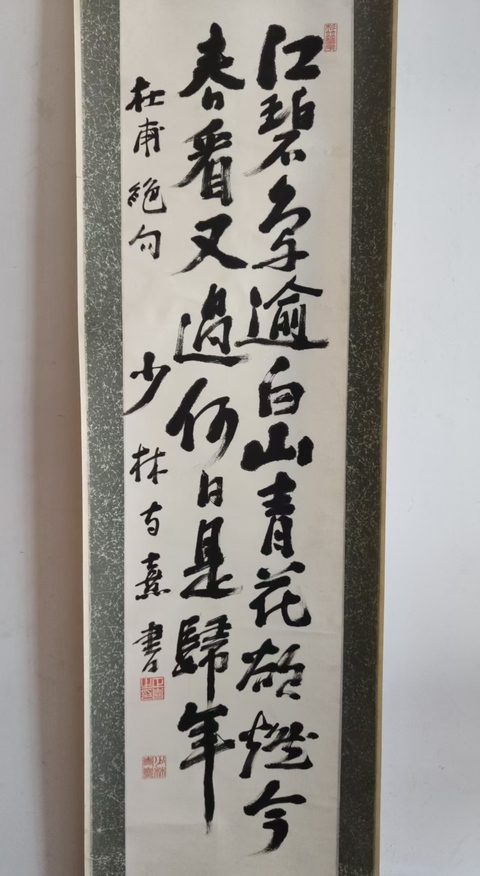 江碧鸟逾白山青花欲燃今
春看又過何日是歸年
杜甫絕句
少林寺熹書